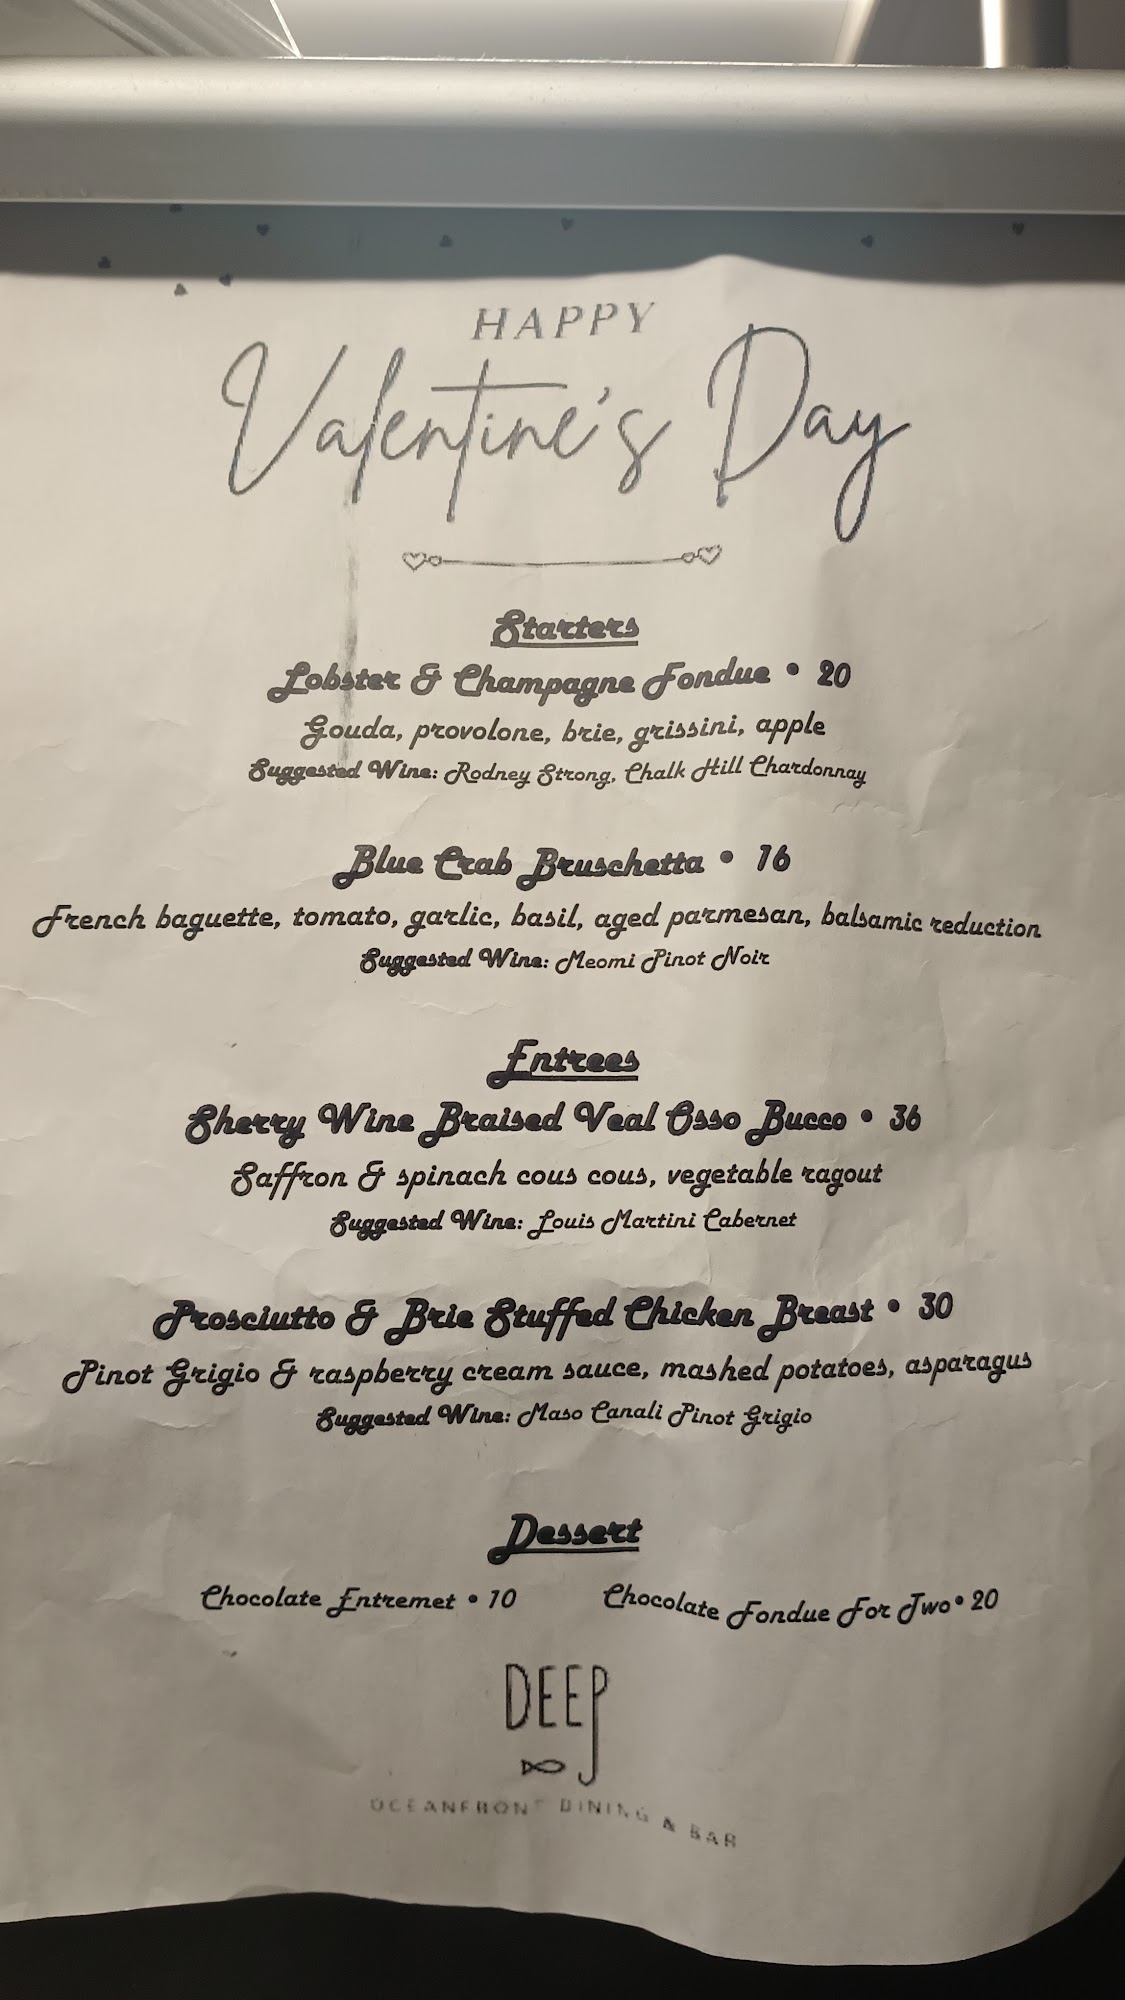 HAPPY
Valentine's Day
Starters
Lobster & Champagne Fondue • 20
Gouda, provolone, brie, grissini, apple
Suggested Wine: Rodney Strong, Chalk Hill Chardonnay
Blue Crab Bruschetta • 16
French baguette, tomato, garlic, basil, aged parmesan, balsamic reduction
Suggested Wine: Meomi Pinot Noir
Entrees
Sherry Wine Braised Veal Osso Bucco • 36
Saffron & spinach cous cous, vegetable ragout
Suggested Wine: Louis Martini Cabernet
Prosciutto & Brie Stuffed Chicken Breast • 30
Pinot Grigio & raspberry cream sauce, mashed potatoes, asparagus
Suggested Wine: Maso Canali Pinot Grigio
Dessert
Chocolate Entremet • 10 Chocolate Fondue For Two • 20
DEEP
OCEANFRONT DINING & BAR